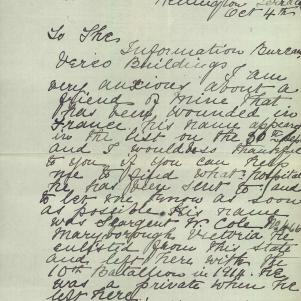 Wellington Terrace
Oct 4th
To The
Information Bureau
Verco Buildings I am
very anxious about a
friend of mine that
has been wounded in
France. His name appears
in the list on the 30th Sept
and I would be thankful
to you if you can help
me to find what hospital
he has been sent to and
to let me know as soon
as possible. His name
was Sargent W Cole
Maryborough Victoria he
enlisted from this state
and left here with the
10th Battallion in 1914. He
was a private when he
left here